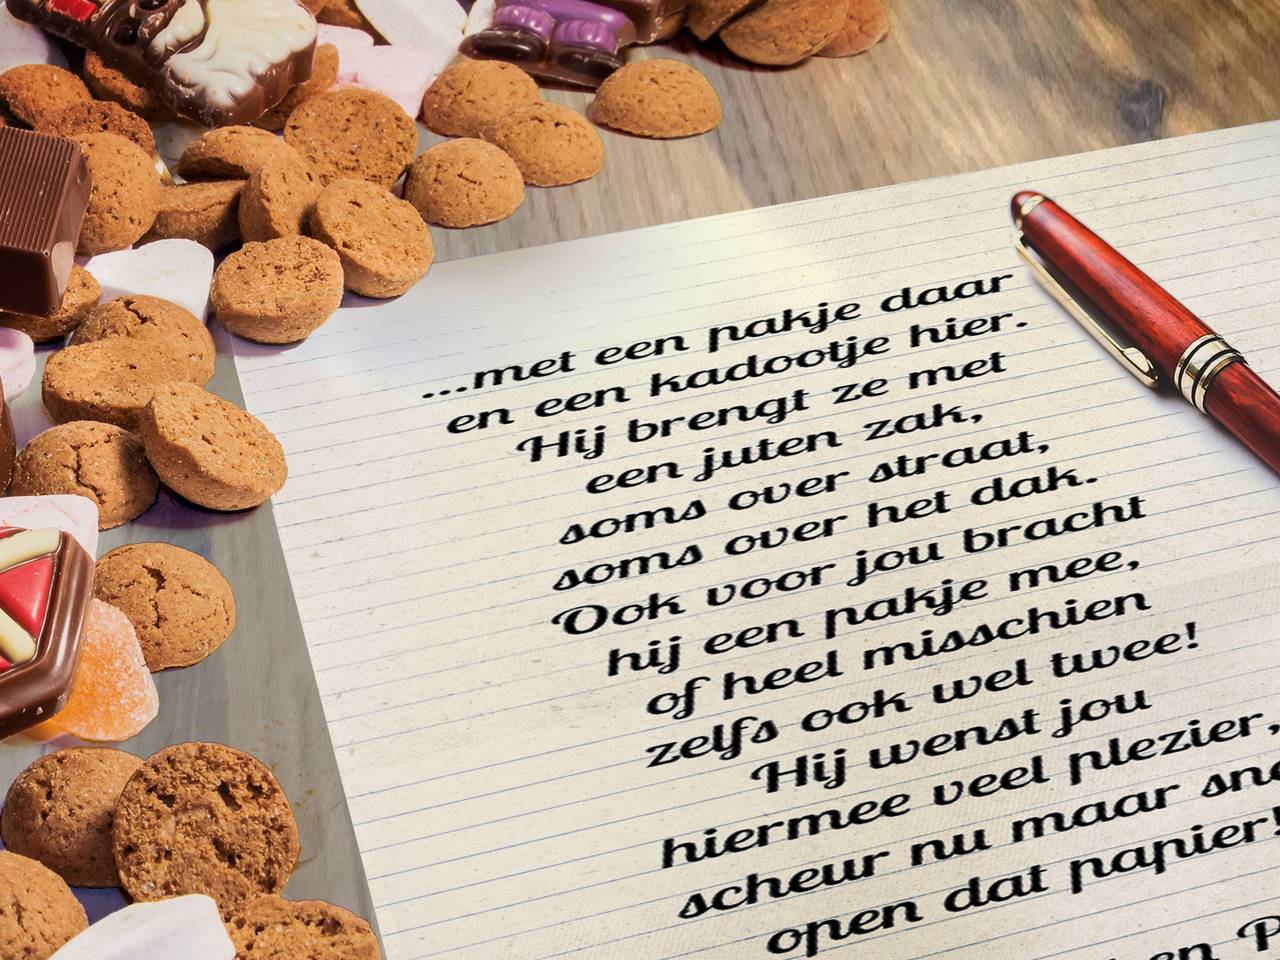 ...met een pakje daar
en een kadootje hier.
Hij brengt ze met
een juten zak,
soms over straat,
soms over het dak.
Ook voor jou bracht
hij een pakje mee,
of heel misschien
zelfs ook wel twee!
Hij wenst jou
hiermee veel plezier,
scheur nu maar sne
open dat papier!
en P